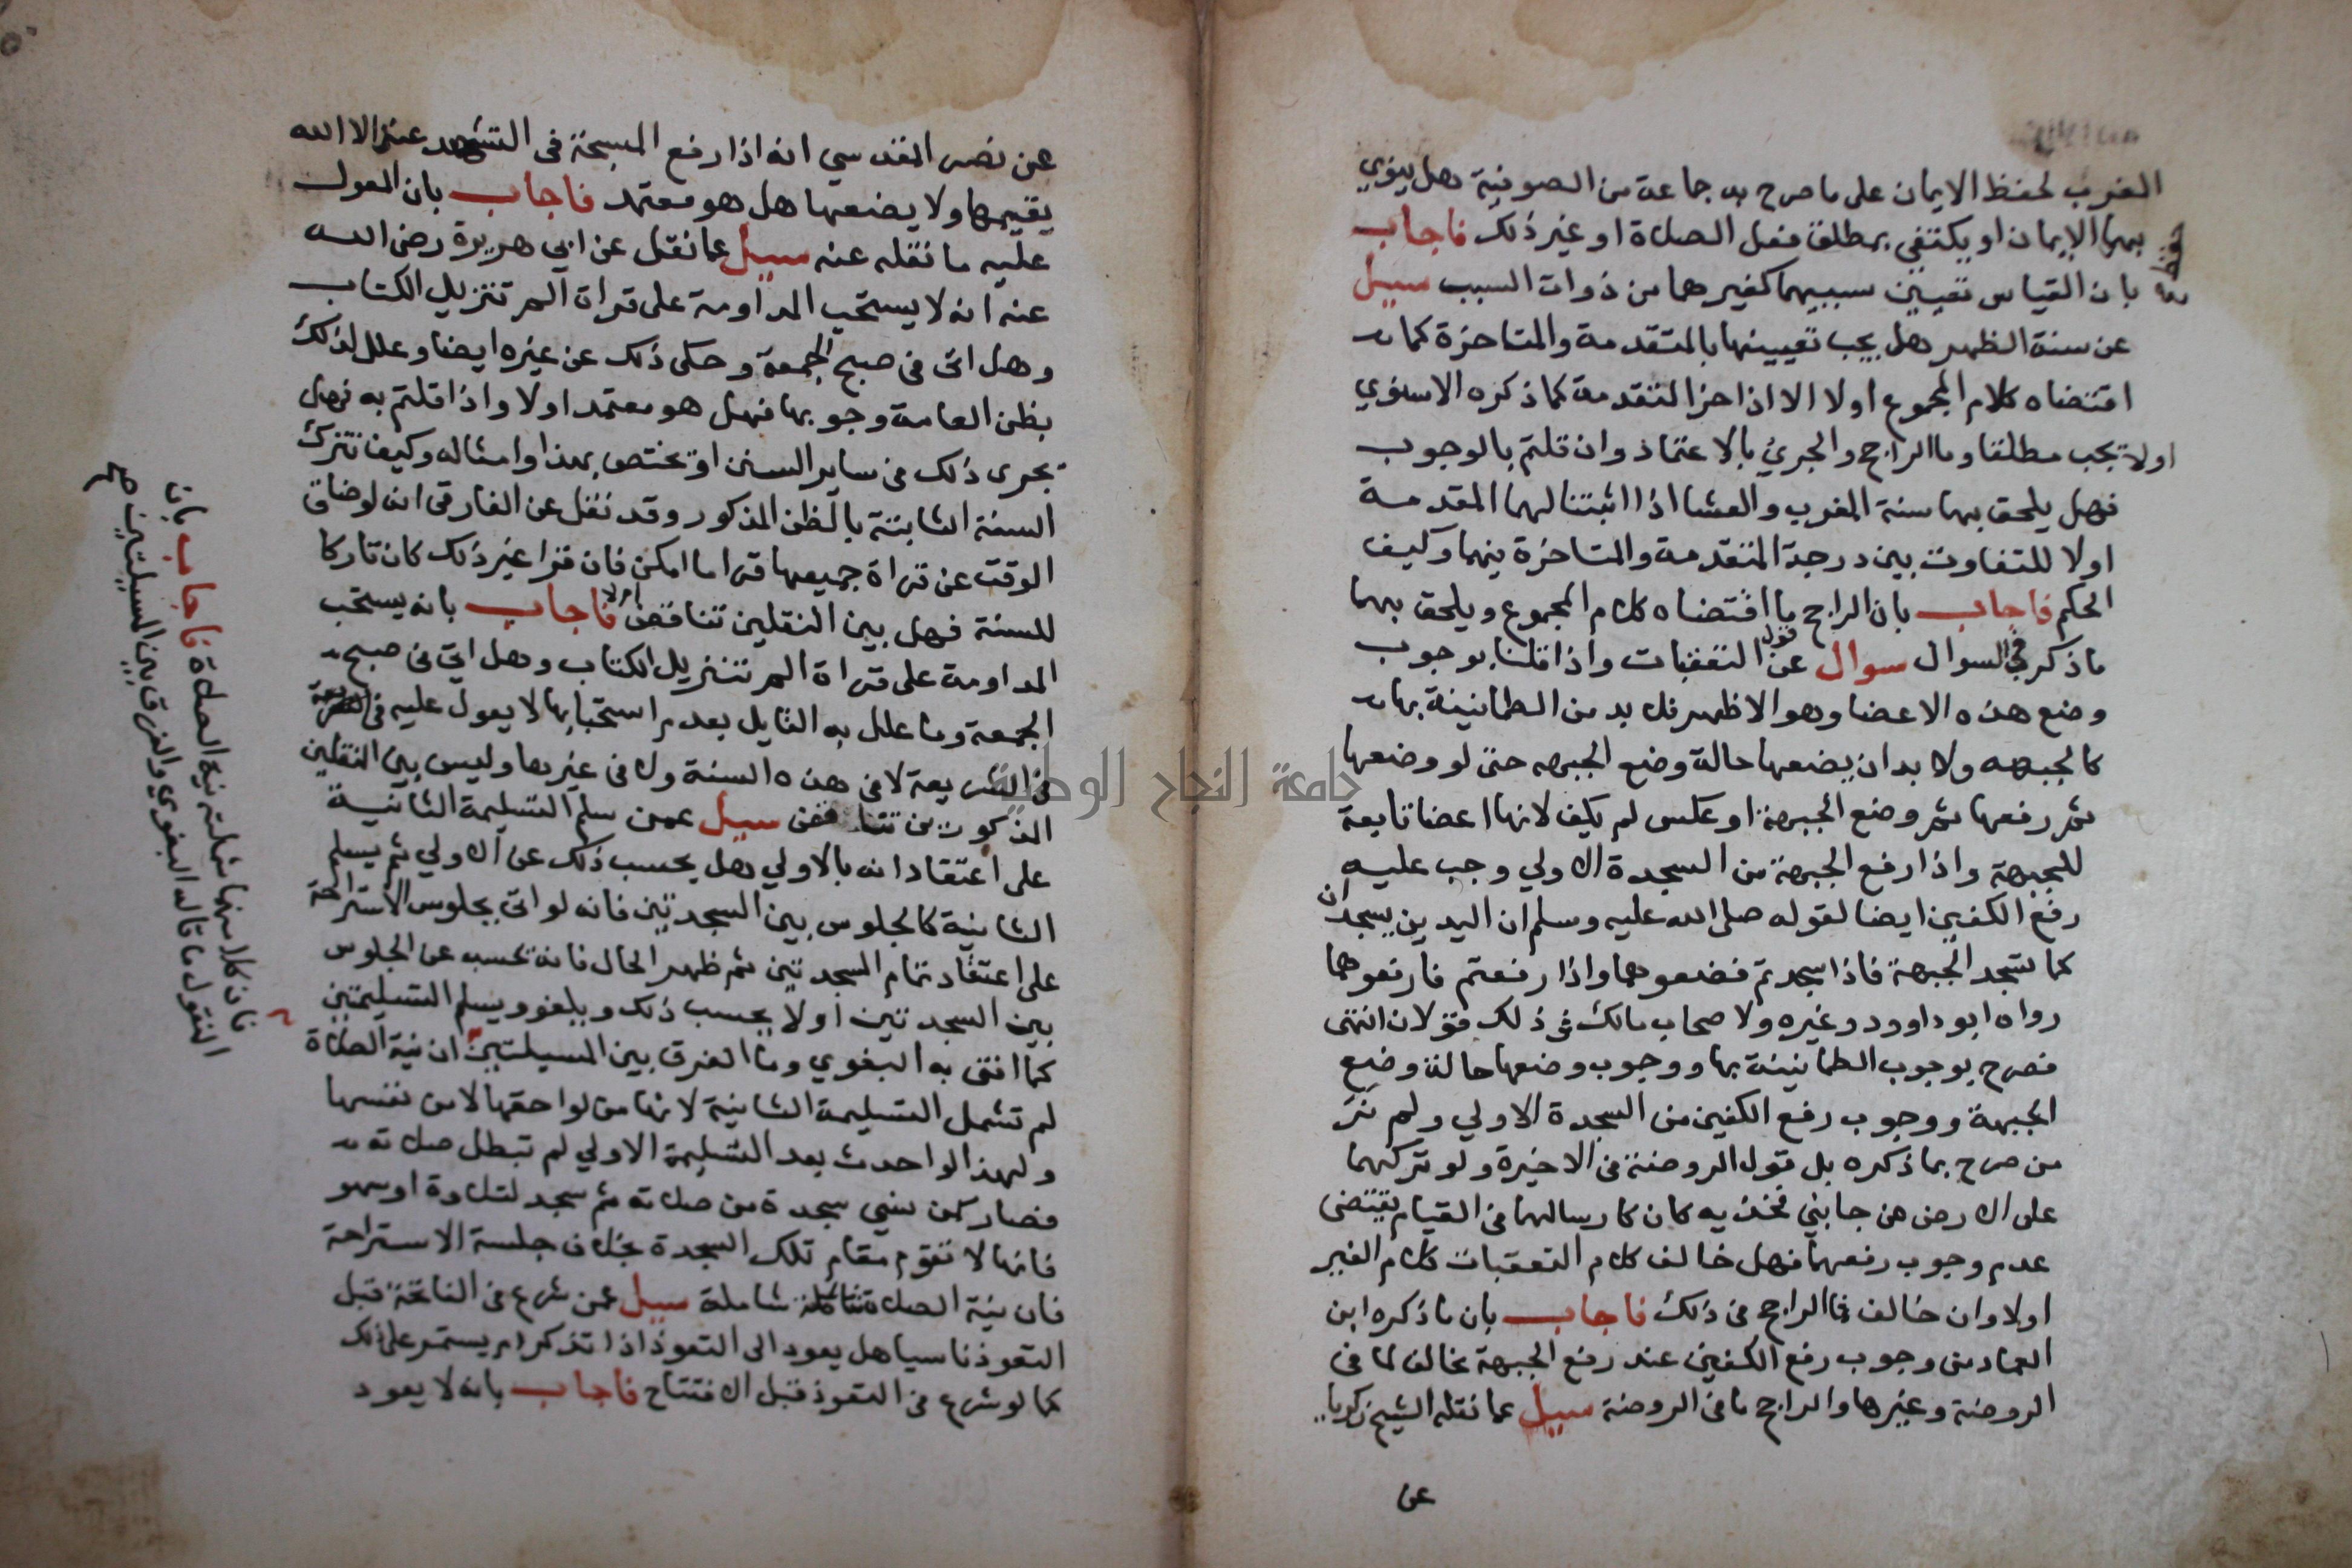 المغرب لحفظ الايمان على ما صرح به جماعة من الصوفية هل ينوي
بهما الايمان او يكتفي بمطلق فعل الصلاة او غير ذلك فاجاب
بان القياس تعيين سببيهما كغيرهما من ذوات السبب سيل
عن سنة الظهر هل يجب تعيينها بالمتقدمة والمتاخرة كما
اقتضاه كلام المجموع اولا الا اذا اخر المتقدمة كما ذكره الاسنوي
اولا يجب مطلقا وما الراجح والحري بالاعتماد وان قلتم بالوجوب
فهل يلحق بها سنة المغرب والعشا اذا اثبتنا لهما المقدمة
اولا للتفاوت بين درجة المتقدمة والمتاخرة فيهما وكيف
الحكم فاجاب بان الراجح ما اقتضاه كلام المجموع ويلحق بهما
ما ذكر في السوال سوال عن قول التعقبات واذا قلنا بوجوب
وضع هذه الاعضا وهو الاظهر فلا بد من الطمانينة بها
كالجبهه ولا بد ان يضعها حالة وضع الجبهه حتى لو وضعها
ثم رفعها ثم وضع الجبهة او عكس لم يكف لانها اعضا تابعة
للجبهة واذا رفع الجبهة من السجدة الاولي وجب عليه
رفع الكفين ايضا لقوله صلى الله عليه وسلم ان اليدين يسجدان
كما تسجد الجبهة فاذا سجدتم فضعوهما واذا رفعتم فارفعوهما
رواه ابو داوود وغيره ولاصحاب مالك في ذلك قولان انتهى
فصرح بوجوب الطمانينة بها ووجوب وضعها حالة وضع
الجبهة ووجوب رفع الكفين من السجدة الاولي ولم نر
من صرح بما ذكره بل قول الروضة في الاخيرة ولو تركهما
على الارض من جانبي فخذيه كان كارسالهما في القيام يقتضى
عدم وجوب رفعهما فهل خالف كلام التعقبات كلام الغير
اولا وان خالف فما الراجح في ذلك فاجاب بان ما ذكره ابن
العماد من وجوب رفع الكفين عند رفع الجبهة مخالف لما في
الروضة وغيرها والراجح ما في الروضة سيل عما نقله الشيخ زكريا
عن
عن نصر المقدسي انه اذا رفع المسبحة في التشهد عند الا الله
يقيمها ولا يضعها هل هو معتمد فاجاب بان المعول
عليه ما نقله عنه سيل عما نقل عن ابي هريرة رضى الله
عنه انه لا يستحب المداومة على قراة الم تنزيل الكتاب
وهل اتى في صبح الجمعة وحكى ذلك عن غيره ايضا وعلل لذلك
بظن العامة وجوبها فهل هو معتمد اولا واذا قلتم به فهل
يجرى ذلك في ساير السنن او يختص بهذا وامثاله وكيف نترك
السنة الثابتة بالظن المذكور وقد نقل عن الفارقى انه لو ضاق
الوقت عن قراة جميعها قرا ما امكن فان قرا غير ذلك كان تاركا
للسنة فهل بين النقلين تناقض اولا فاجاب بانه يستحب
المداومة على قراة الم تنزيل الكتاب وهل اتى في صبح
الجمعة وما علل به القايل بعدم استحبابها لا يعول عليه
في الشريعة لا في هذه السنة ولا في غيرها وليس بين النقلين
المذكورين تناقض سيل عمن سلم التسليمة الثانية
على اعتقاد انه بالاولي هل يحسب ذلك عن الاولي ثم يسلم
الثانية كالجلوس بين السجدتين فانه لو اتى بجلوس الاستراحة
على اعتقاد تمام السجدتين ثم ظهر الحال فانه تحسب عن الجلوس
بين السجدتين اولا يحسب ذلك ويلغو ويسلم التسليمتين
كما افتى به البغوي وما الفرق بين المسيلتين ان نية الصلاة
لم تشمل التسليمة الثانية لانها من لواحقها لا من نفسها
ولهذا لو احدث بعد التسليمة الاولي لم تبطل صلاته
فصار كمن نسي سجدة من صلاته ثم سجد لتلاوة او سهو
فانها لا تقوم مقام تلك السجدة بخلاف جلسة الاستراحة
فان نية الصلاة شاملة سيل عمن شرع في الفاتحة قبل
التعوذ ناسيا هل يعود الى التعوذ اذا تذكر ام يستمر على ذلك
كما لو شرع في التعوذ قبل الافتتاح فاجاب بانه لا يعود
فان كلا منهما شملته نية الصلاة فاجاب بان
المنقول ما قاله البغوي والفرق بين المسيلتين صح
جامعة النجاح الوطنية